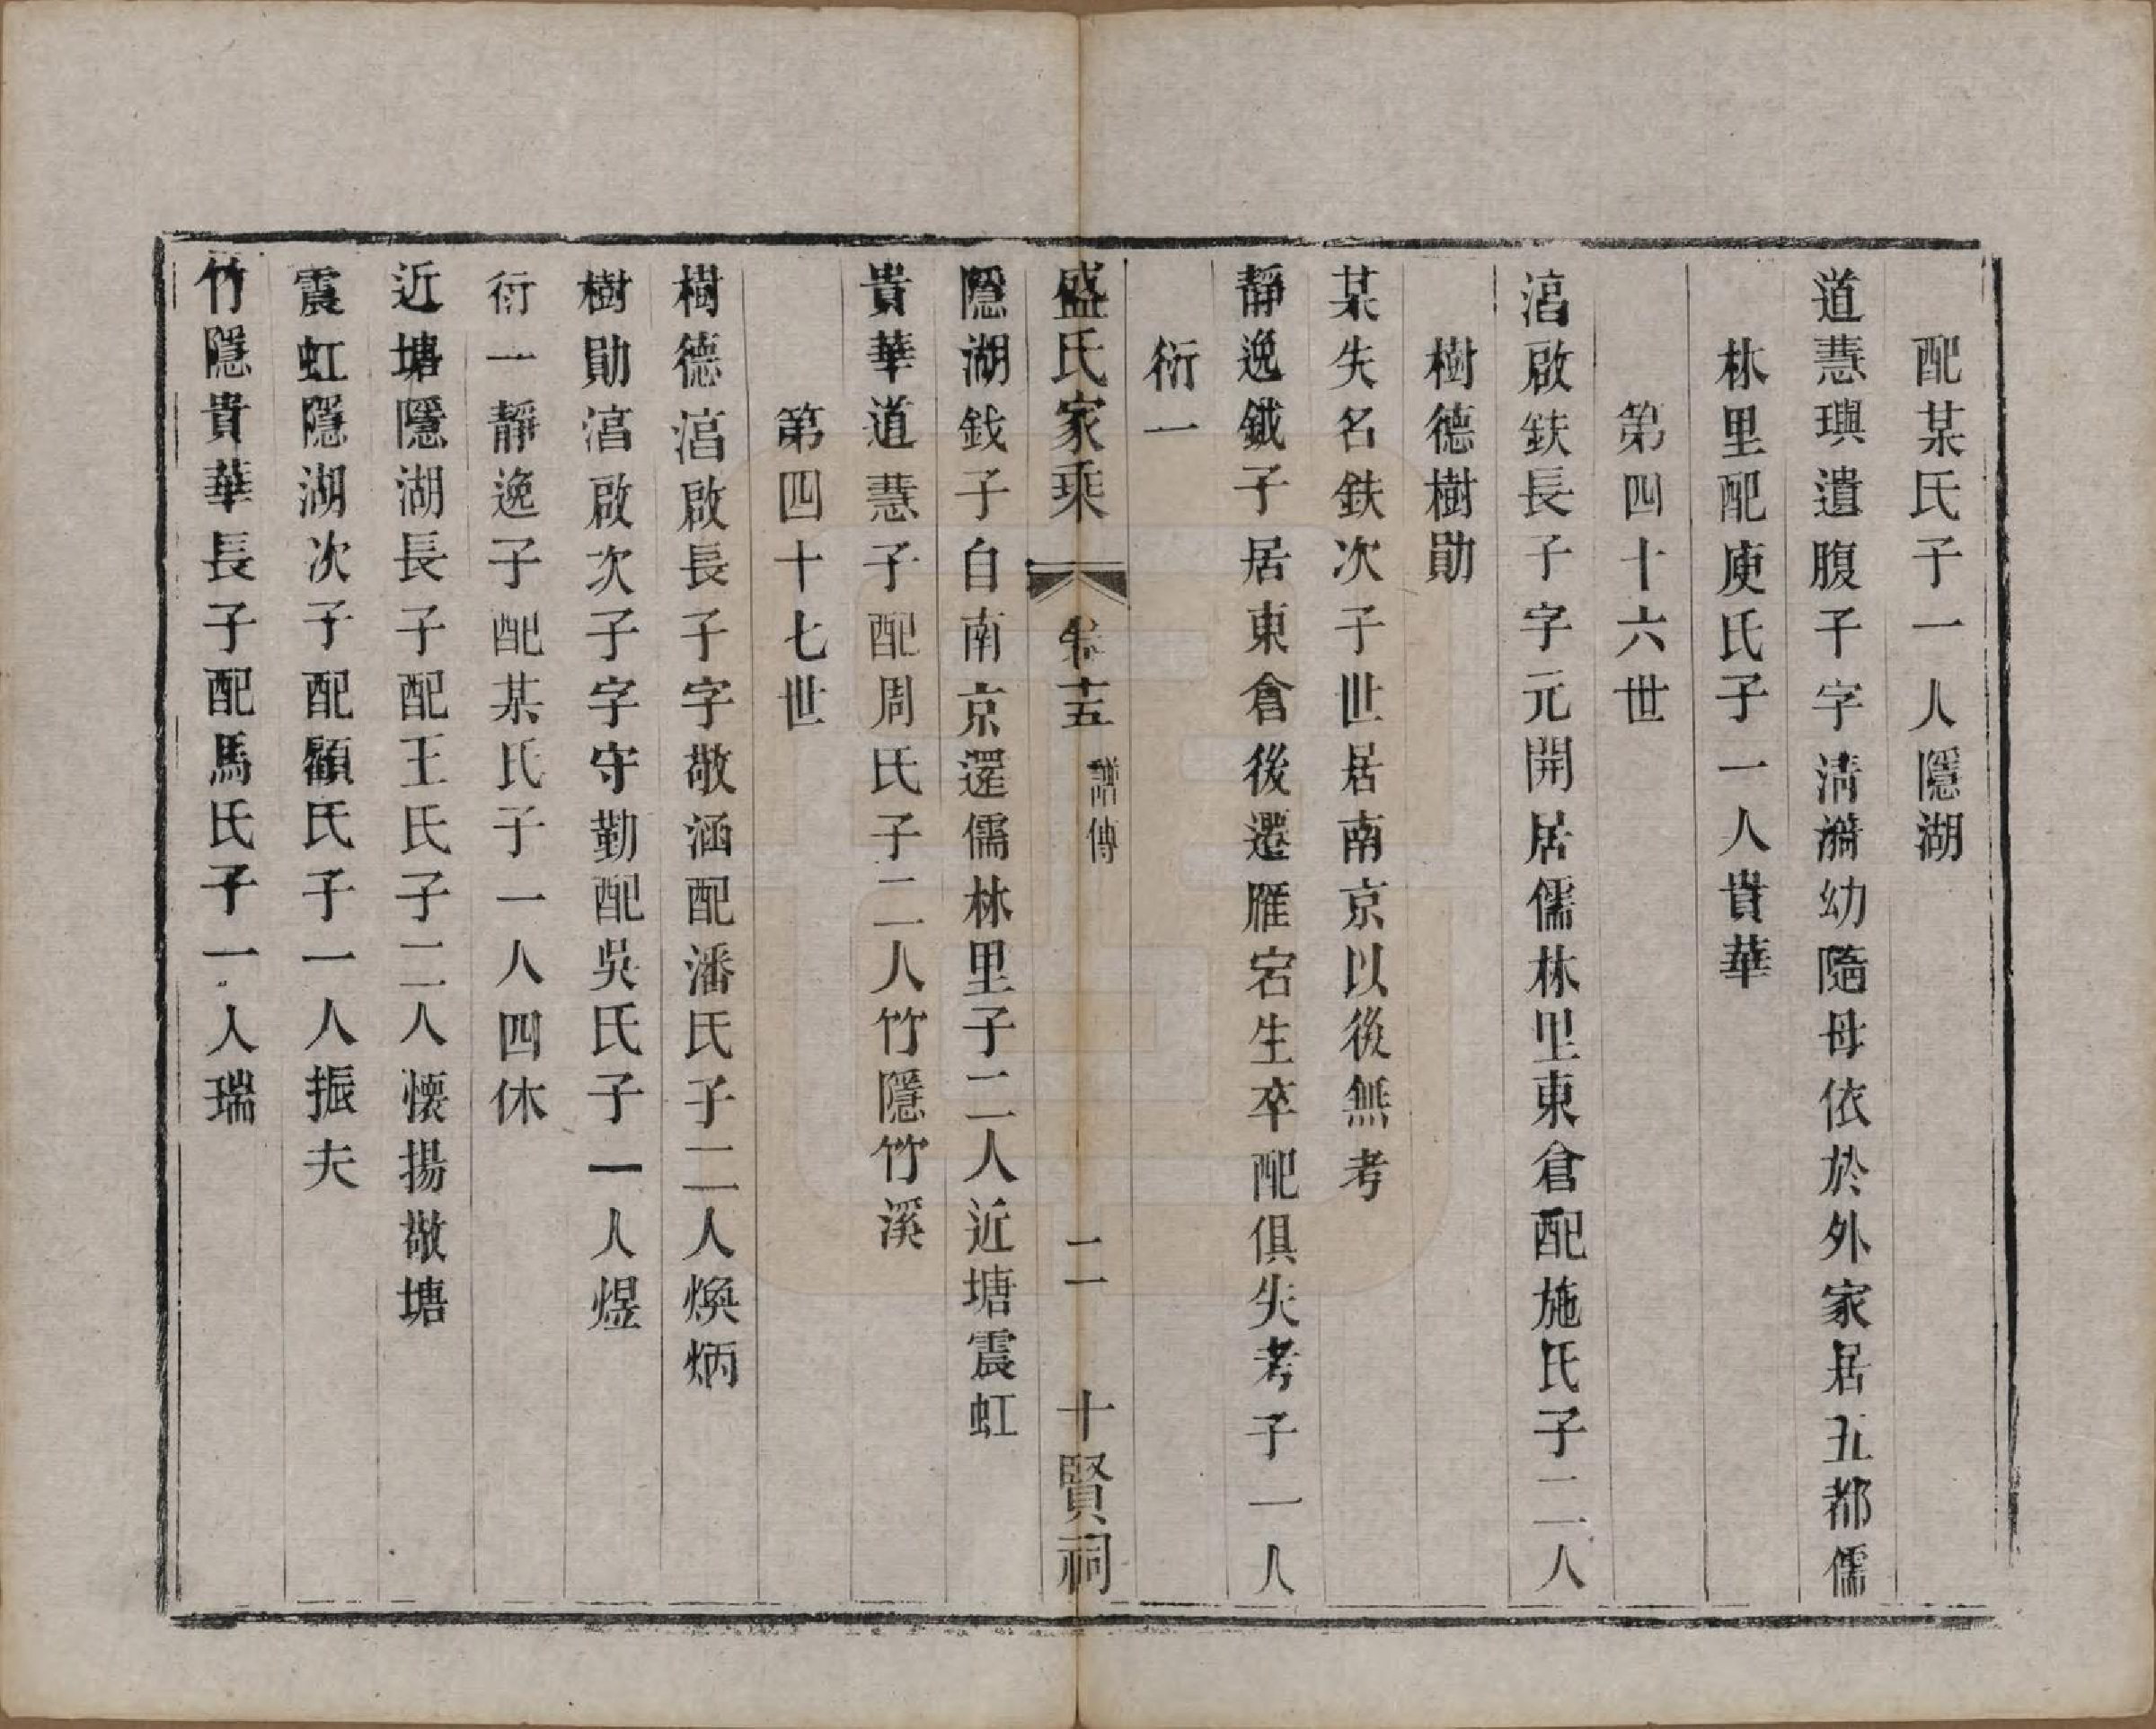 配某氏子一人隱湖
道慧璵遺腹子字清漪幼隨母依於外家居五都儒
林里配庾氏子一人貴華
第四十六世
啟鈇長子字元開居儒林里東倉配施氏子二人
樹德樹勛
某失名鈇次子世居南京以後無考
靜逸鉞子居東倉後遷雁宕生卒配俱失考子一人
衍一
盛氏家乘 卷十五 譜傳 二 十賢祠
隱湖錢子自南京還儒林里子二人近塘震虹
貴華道慧子配周氏子二人竹隱竹溪
第四十七世
樹德啟長子字敬涵配潘氏子二人煥炳
樹勛啟次子字守勤配吳氏子一人煜
衍一靜逸子配某氏子一人四休
近塘隱湖長子配王氏子二人懷揚敬塘
震虹隱湖次子配顧氏子一人振夫
竹隱貴華長子配馬氏子一人瑞